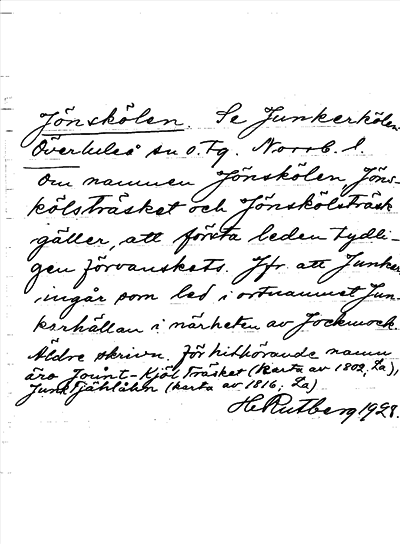 Jönskölen. Se Junkerkölen.
Överluleå sn o. tg. Norrb. l.
Om namnen Jönskölen, Jöns-
kölsträsket och Jönskölsträsk
gäller, att första leden tydli-
gen förvanskats. Jfr att Junker
ingår som led i ortnamnet Jun-
kerhällan i närheten av Jockmock.
Äldre skrivn. för hithörande namn
äro Jount-Kjöl Träsket (Karta av 1802, La),
Junktjählåhn (karta av 1816, La)
H Rutberg 1928.